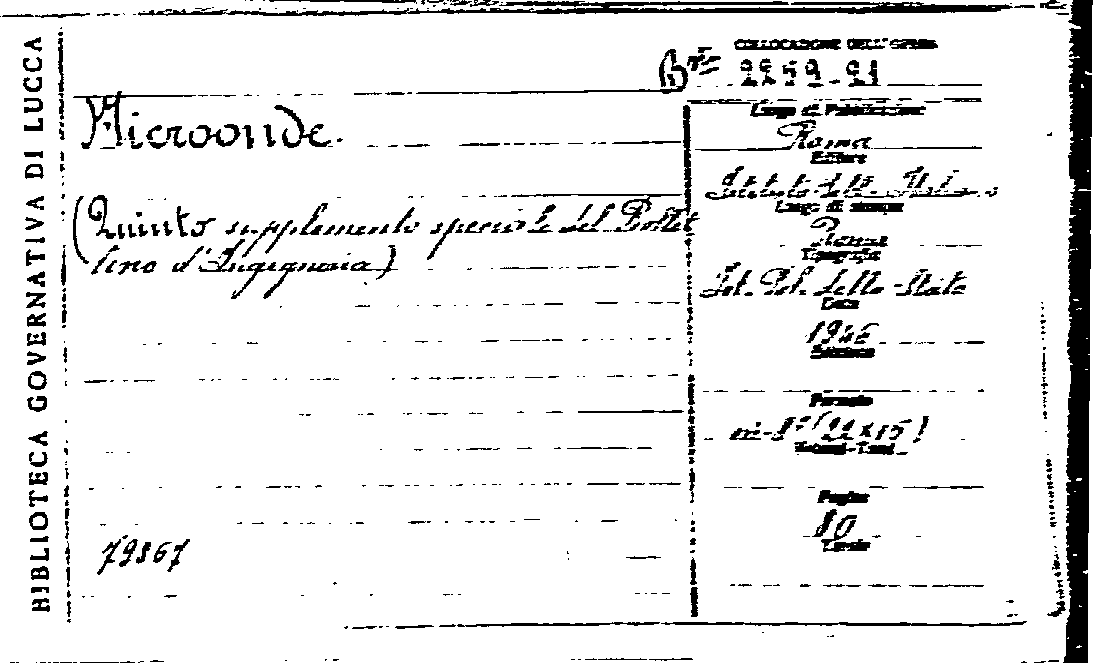 BIBLIOTECA GOVERNATIVA DI LUCCA
COLLOCAZIONE DELL'OPERA
Microonde.
(Quinto supplemento speciale del Bollet
tino d'Ingegneria)
79867
Luogo di Pubblicazione
Roma
Editore
Istituto
Luogo di stampa
Roma
Tipografia
Ist. Pol. dello Stato
Data
Edizione
Formato
in-8° (22x15)
Volumi - Tomi
Pagine
80
Tavole